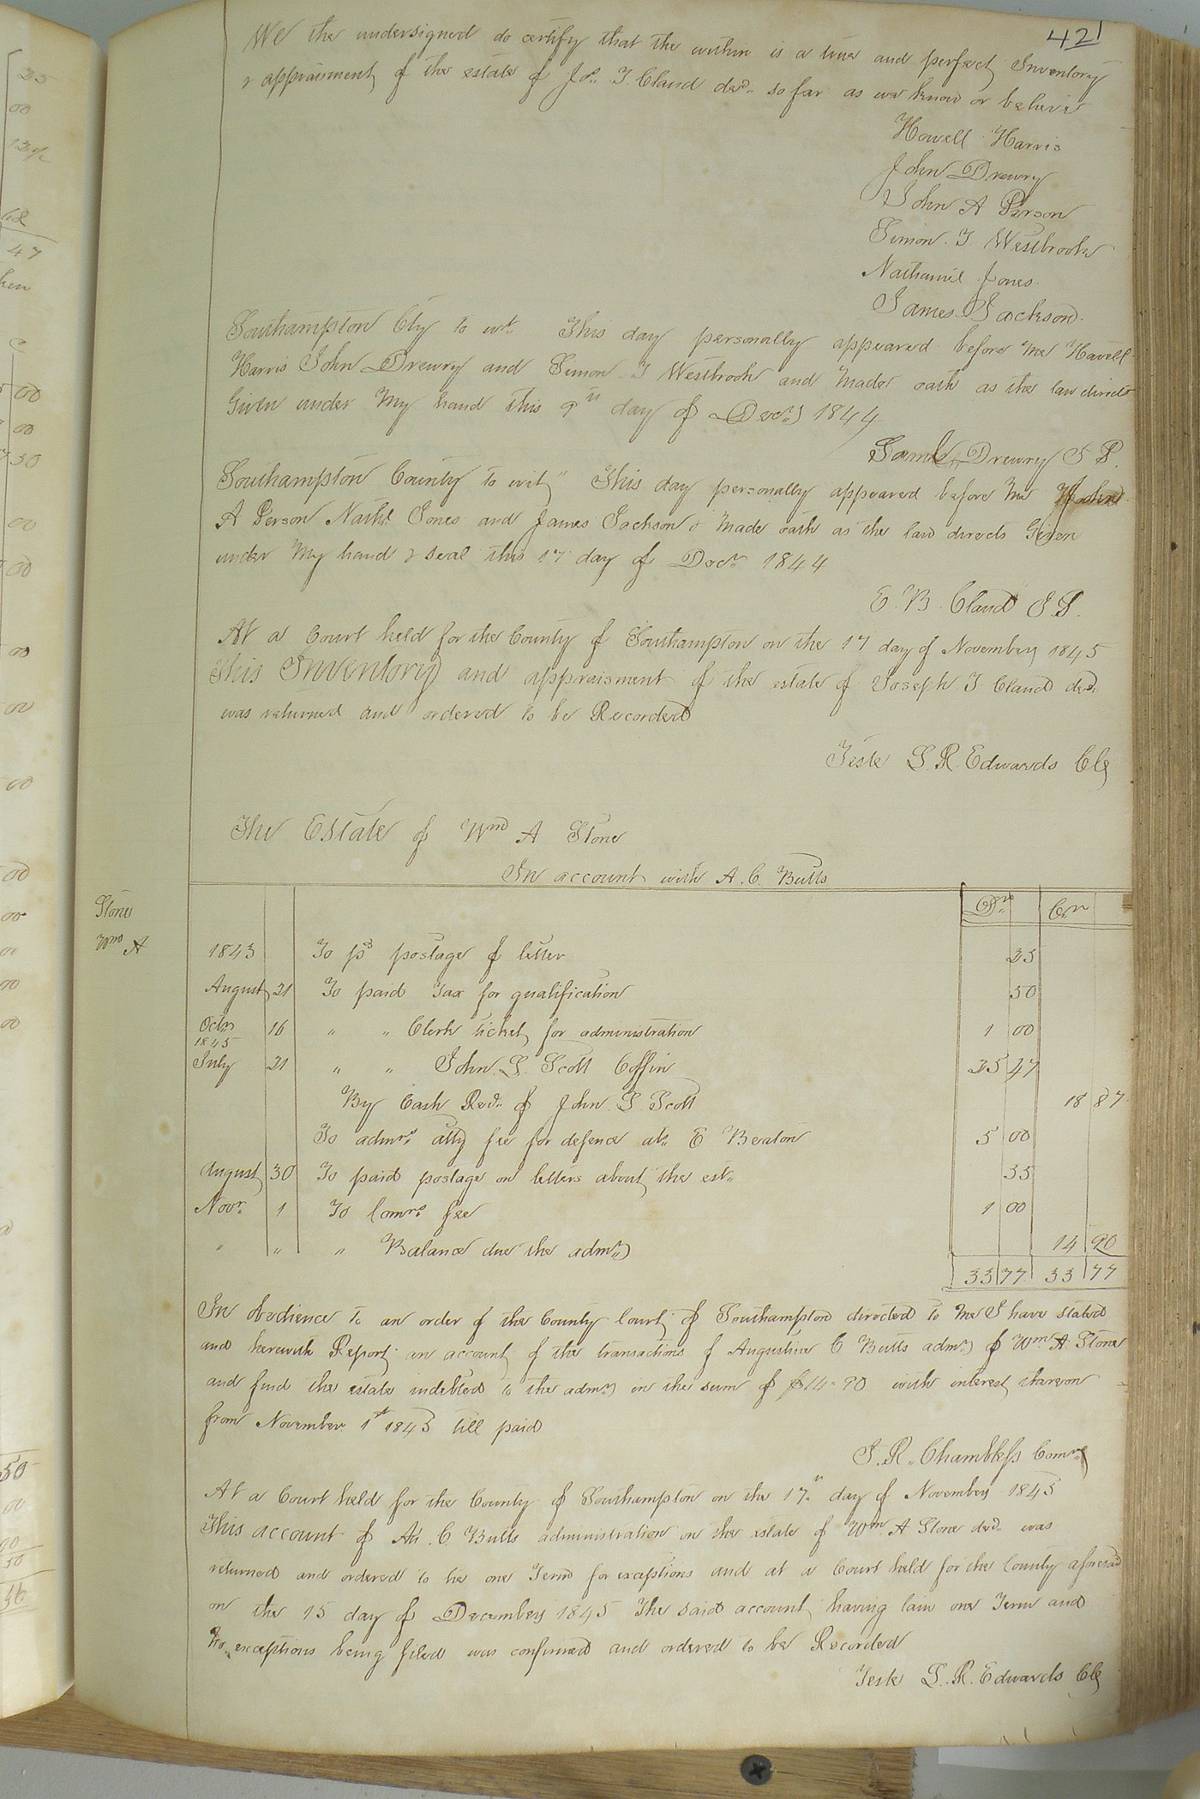 421
We the undersigned do certify that the within is a true and perfect Inventory
& appraisment of the estate of Jos. T. Claud decd. so far as we know or believe
Howell Harris
John Drewry
John A Person
Simon T Westbrook
Nathaniel Jones
James Jackson
Southampton Cty to wit This day personally appeared before me Howell
Harris John Drewry and Simon T Westbrook and made oath as the law directs
Given under My hand this 9th day of Decr. 1844
Saml. Drewry J P.
Southampton County to wit, This day personally appeared before me John
A Person Nathl. Jones and James Jackson & Made oath as the law directs Given
under My hand & seal this 17 day of Decr. 1844
E. B. Claud J P.
At a Court held for the County of Southampton on the 17 day of November 1845
This Inventory and appraisment of the estate of Joseph T Claud decd.
was returned and ordered to be Recorded
Teste L R Edwards Clk
The Estate of Wm A Stone
In account with A. C. Butts
Dr. Cr
Stone
Wm A
1843 To pd postage of letter 25
August 21 To paid Tax for qualification 50
Octr 16 " " Clerk ticket for administration 1 00
1845
July 21 " " John S Scott Coffin 25 47
By Cash Recd. of John S Scott 18 87
To admrs. atty fee for defence ats. E Beaton 5 00
August 30 To paid postage on letters about the est. 35
Novr. 1 To Comrs. fee 1 00
" " " Balance due the admr. 14 90
33 77 33 77
In obedience to an order of the County Court of Southampton directed to me I have stated
and herewith Report an account of the transactions of Augustine C Butts admr. of Wm A Stone
and find the estate indebted to the admr. in the sum of $14.90 with interest thereon
from November 1st 1845 till paid
J. R. Chambless Comr.
At a Court held for the County of Southampton on the 17th day of November 1845
This account of A. C Butts administration on the estate of Wm A Stone decd. was
returned and ordered to lie one Term for exceptions and at a Court held for the County aforesaid
on the 15 day of December 1845 The said account having lain one Term and
no exceptions being filed was confirmed and ordered to be Recorded
Teste L. R. Edwards Clk